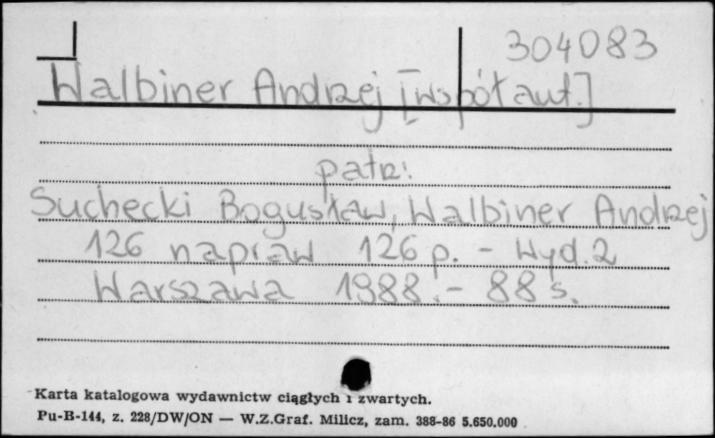 304083
Walbiner Andrzej [współaut.]
patrz:
Suchecki Bogusław, Walbiner Andrzej
126 napraw 126 p. - Wyd. 2
Warszawa 1988. - 88 s.
Karta katalogowa wydawnictw ciągłych i zwartych.
Pu-B-144, z. 228/DW/ON — W.Z.Graf. Milicz, zam. 388-86 5.650.000